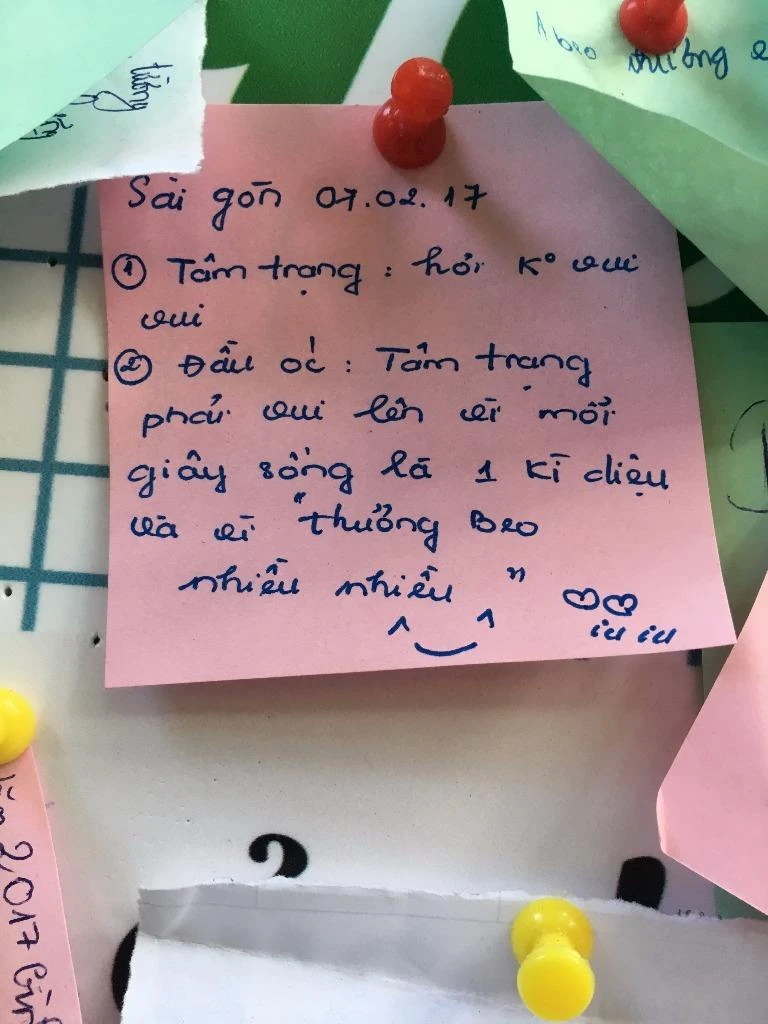 Sài gòn 07.02.17
① Tâm trạng : hơi K° vui
vui
② Đầu óc : Tâm trạng
phải vui lên vì mỗi
giây sống là 1 kì diệu
và vì "thương Bzo
nhiều nhiều"
iu iu
tưởng
2,017